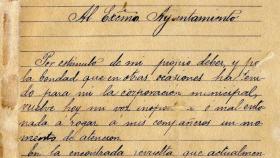 Al Excmo Ayuntamiento
Por estimulo de mi propio deber y por
la bondad que en otras ocasiones ha
para mi la corporacion municipal,
vuelve hoy mi voz inoportuna o mal ento
nada a rogar a mis compañeros un mo
mento de atencion.
En la encontrada revuelta que actualmen